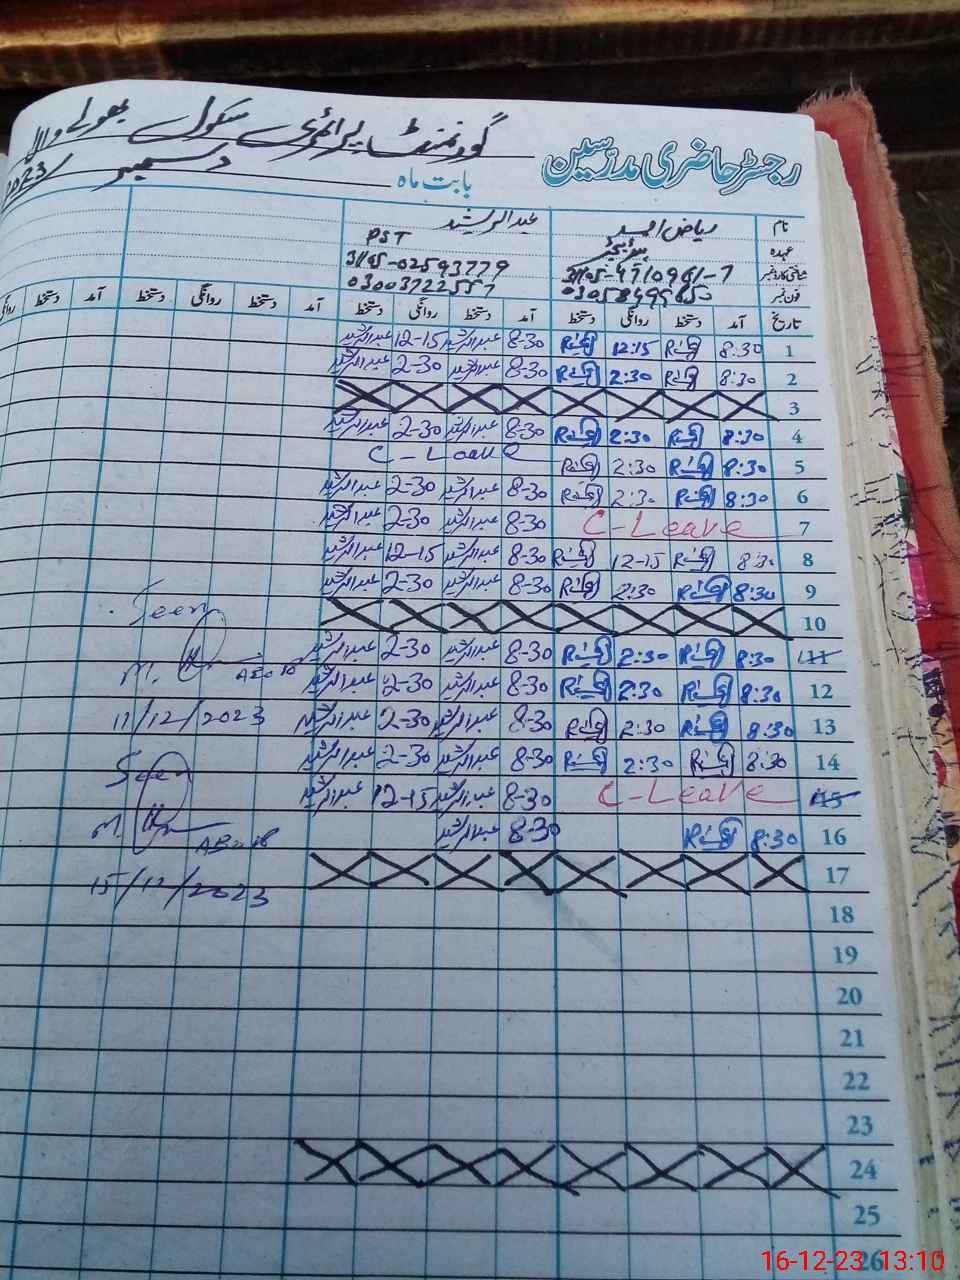 گورنمنٹ پرائمری سکول بھولے والا
رجسٹر حاضری مدرسین
بابت ماہ دسمبر 2023/
نام ریاض احمد عبدالرشید
عہدہ PST
شناختی کارڈ نمبر 31105-02593779
فون نمبر 03003722557
تاریخ آمد دستخط روانگی دستخط آمد دستخط روانگی دستخط آمد دستخط روانگی دستخط آمد دستخط
1 8:30 12:15 8-30 عبدالرشید 12-15 عبدالرشید
2 8:30 2:30 8-30 عبدالرشید 2-30 عبدالرشید
3
4 8:30 2:30 8-30 عبدالرشید 2-30 عبدالرشید
5 8:30 2:30 C-Leave
6 8:30 2:30 8-30 عبدالرشید 2-30 عبدالرشید
7 C-Leave 8-30 عبدالرشید 2-30 عبدالرشید
8 8:30 12-15 8-30 عبدالرشید 12-15 عبدالرشید
9 8:30 2:30 8-30 عبدالرشید 2-30 عبدالرشید
10
Seen
11 8:30 2:30 8-30 عبدالرشید 2-30 عبدالرشید
12 8:30 2:30 8-30 عبدالرشید 2-30 عبدالرشید
13 8:30 2:30 8-30 عبدالرشید 2-30 عبدالرشید
11/12/2023
14 8:30 2:30 8-30 عبدالرشید 2-30 عبدالرشید
Seen
15 C-Leave 8-30 عبدالرشید 12-15 عبدالرشید
16 8:30 8-30 عبدالرشید
17
15/12/2023
18
19
20
21
22
23
24
25
26
16-12-23 13:10